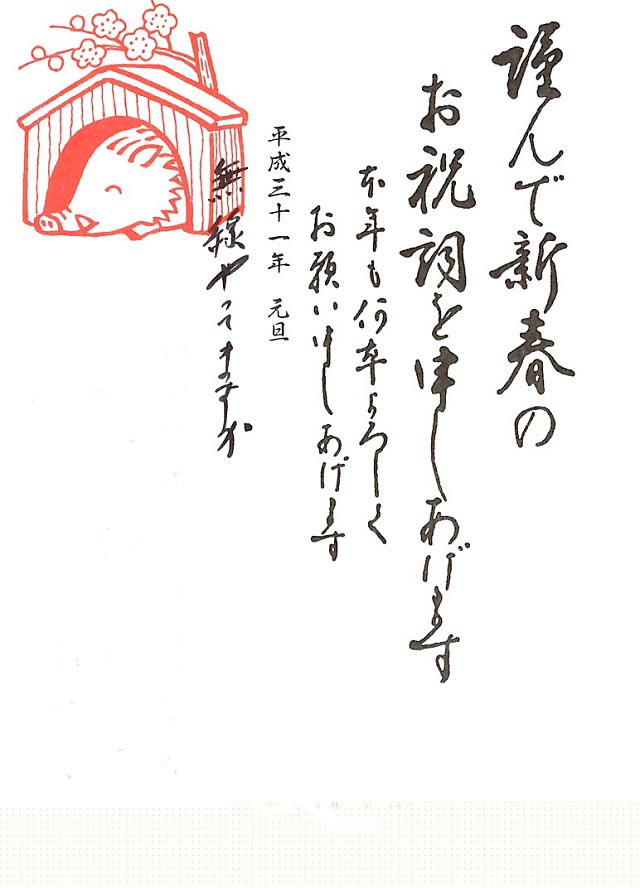 謹んで新春の
お祝詞を申しあげます
本年も何卒よろしく
お願い申しあげます
平成三十一年 元旦
無線やってますか